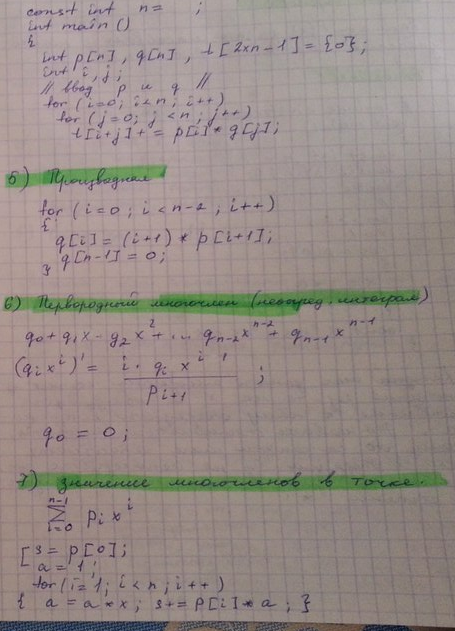 const int n= ;
int main ()
{
int p[n], q[n], t[2xn-1]={0};
int i, j;
// ввод p и q //
for (i=0; i<n; i++)
for (j=0; j<n; j++)
t[i+j]+=p[i]*g[j];
5) Производная
for (i=0; i<n-2, i++)
{
q[i]=(i+1)*p[i+1];
} q[n-1]=0;
6) Первородный многочлен (неопред. интеграл)
q0+q1x-g2x²+... qn-2x^n-2+ qn-1x^n-1
(qixi)' = i·qi x^i 1 / pi+1 ;
q0 = 0;
7) значение многочленов в точке.
n-1 ∑ i=0 pi x^i
[ s=p[0];
a=1;
for(i=1; i<n, i++)
{ a=a*x; s+=p[i]*a; }